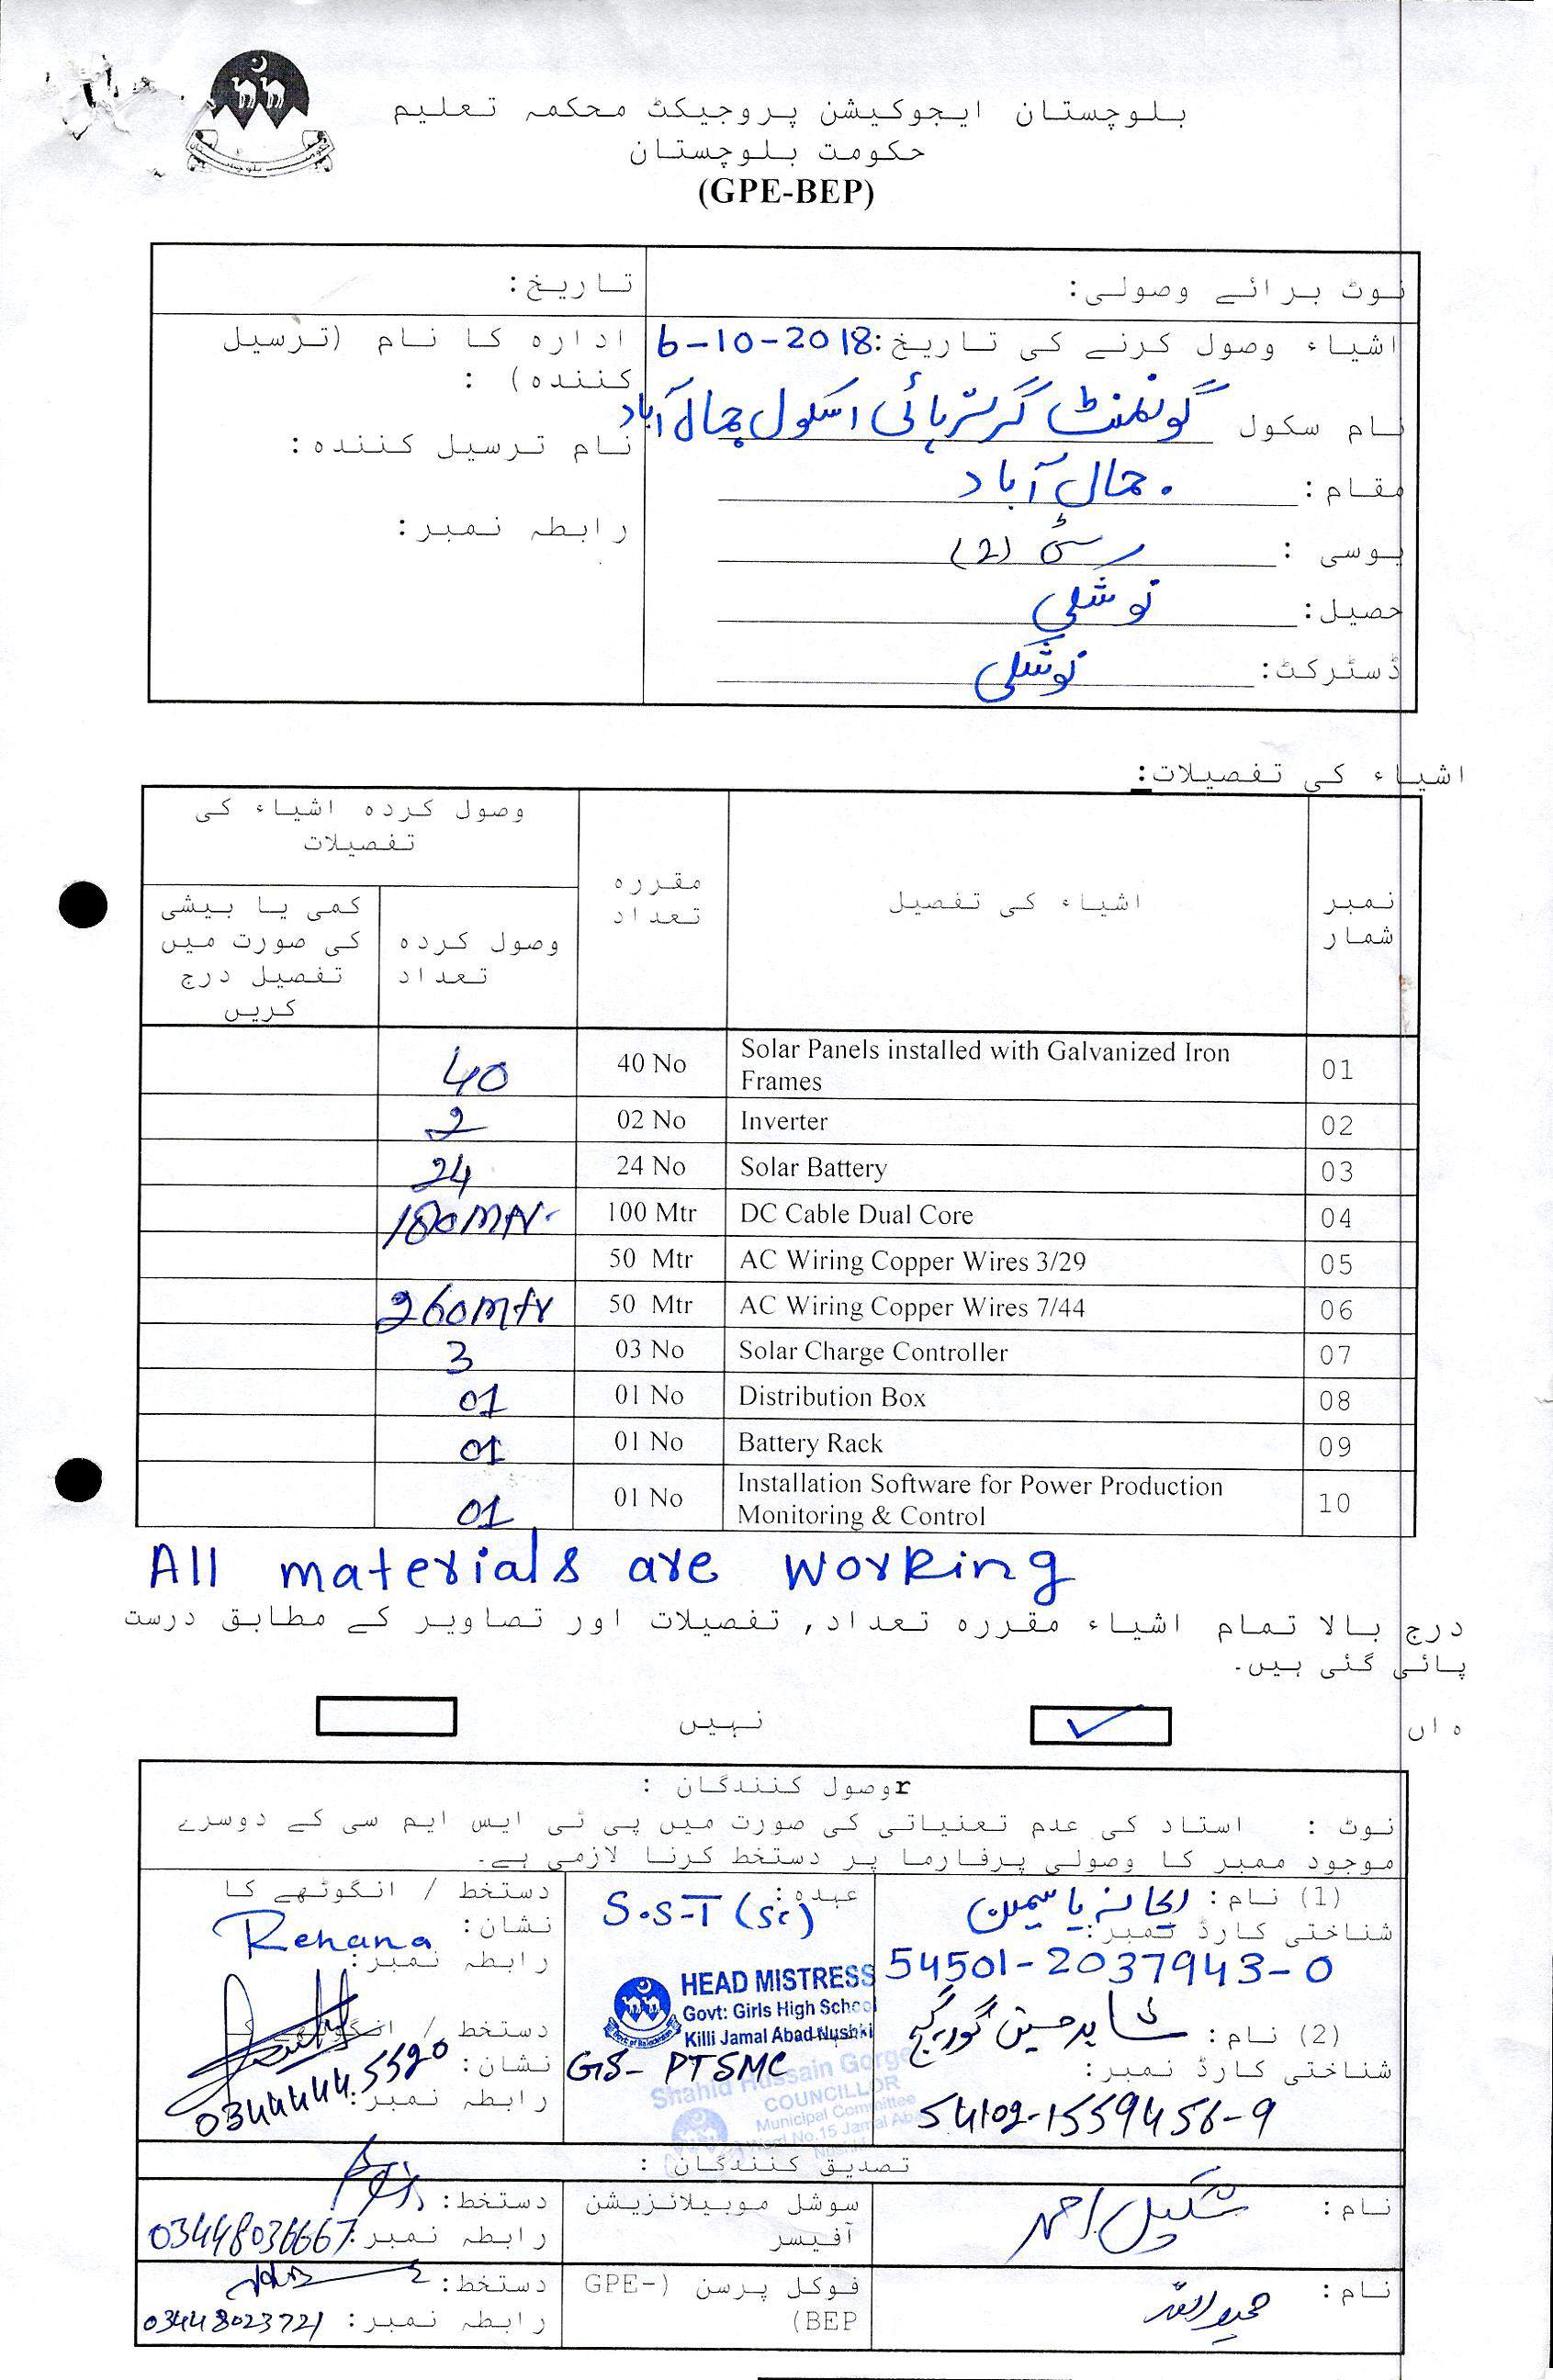 بلوچستان ایجوکیشن پروجیکٹ محکمہ تعلیم
حکومت بلوچستان
(GPE-BEP)
نوٹ برائے وصولی:
تاریخ:
اشیاء وصول کرنے کی تاریخ: 6-10-2018
نام سکول گورنمنٹ گرلز ہائی اسکول جمال آباد
مقام: جمال آباد
یوسی : سٹی (2)
حصیل: نوشکی
ڈسٹرکٹ: نوشکی
ادارہ کا نام (ترسیل
کنندہ) :
نام ترسیل کنندہ:
رابطہ نمبر:
اشیاء کی تفصیلات:
نمبر شمار
اشیاء کی تفصیل
مقررہ تعداد
وصول کردہ اشیاء کی تفصیلات
وصول کردہ تعداد
کمی یا بیشی کی صورت میں تفصیل درج کریں
01 Solar Panels installed with Galvanized Iron Frames 40 No 40
02 Inverter 02 No 2
03 Solar Battery 24 No 24
04 DC Cable Dual Core 100 Mtr 180 Mtr.
05 AC Wiring Copper Wires 3/29 50 Mtr
06 AC Wiring Copper Wires 7/44 50 Mtr 260 mtr
07 Solar Charge Controller 03 No 3
08 Distribution Box 01 No 01
09 Battery Rack 01 No 01
10 Installation Software for Power Production Monitoring & Control 01 No 01
All materials are working
درج بالا تمام اشیاء مقررہ تعداد, تفصیلات اور تصاویر کے مطابق درست
پائی گئی ہیں۔
ہاں ✓
نہیں
rوصول کنندگان :
نوٹ : استاد کی عدم تعنیاتی کی صورت میں پی ٹی ایس ایم سی کے دوسرے
موجود ممبر کا وصولی پرفارما پر دستخط کرنا لازمی ہے۔
(1) نام: ریحانہ یاسمین
شناختی کارڈ نمبر:
54501-2037943-0
عہدہ: S.S.T (Sc)
HEAD MISTRESS
Govt: Girls High School
Killi Jamal Abad Nushki
دستخط / انگوٹھے کا
نشان: Rehana
رابطہ نمبر:
(2) نام: شاہد حسین گورگیج
شناختی کارڈ نمبر:
54102-1559456-9
GS- PTSMC
Shahid Hussain Gorgej
COUNCILLOR
Municipal Committee
Ward No.15 Jamal Abad
Nushki
دستخط / انگوٹھے کا
نشان:
رابطہ نمبر: 03444445590
تصدیق کنندگان :
نام: شکیل احمد
سوشل موبیلائزیشن
آفیسر
دستخط:
رابطہ نمبر: 03448036667
نام: حمیداللہ
فوکل پرسن (GPE-
BEP)
دستخط:
رابطہ نمبر: 03448023721